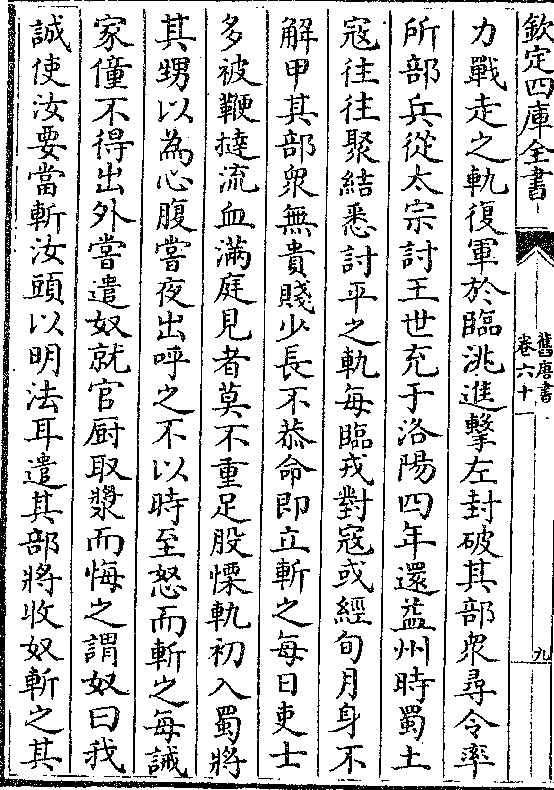 欽定四庫全書
舊唐書
卷六十
九
力戰走之軌復軍於臨洮進擊左封破其部衆尋令率
所部兵從太宗討王世充于洛陽四年還益州時蜀土
寇往往聚結悉討平之軌每臨戎對寇或經旬月身不
解甲其部衆無貴賤少長不恭命即立斬之每日吏士
多被鞭撻流血滿庭見者莫不重足股慄軌初入蜀將
其甥以為心腹嘗夜出呼之不以時至怒而斬之每誡
家僮不得出外嘗遣奴就官厨取漿而悔之謂奴曰我
誠使汝要當斬汝頭以明法耳遣其部將收奴斬之其